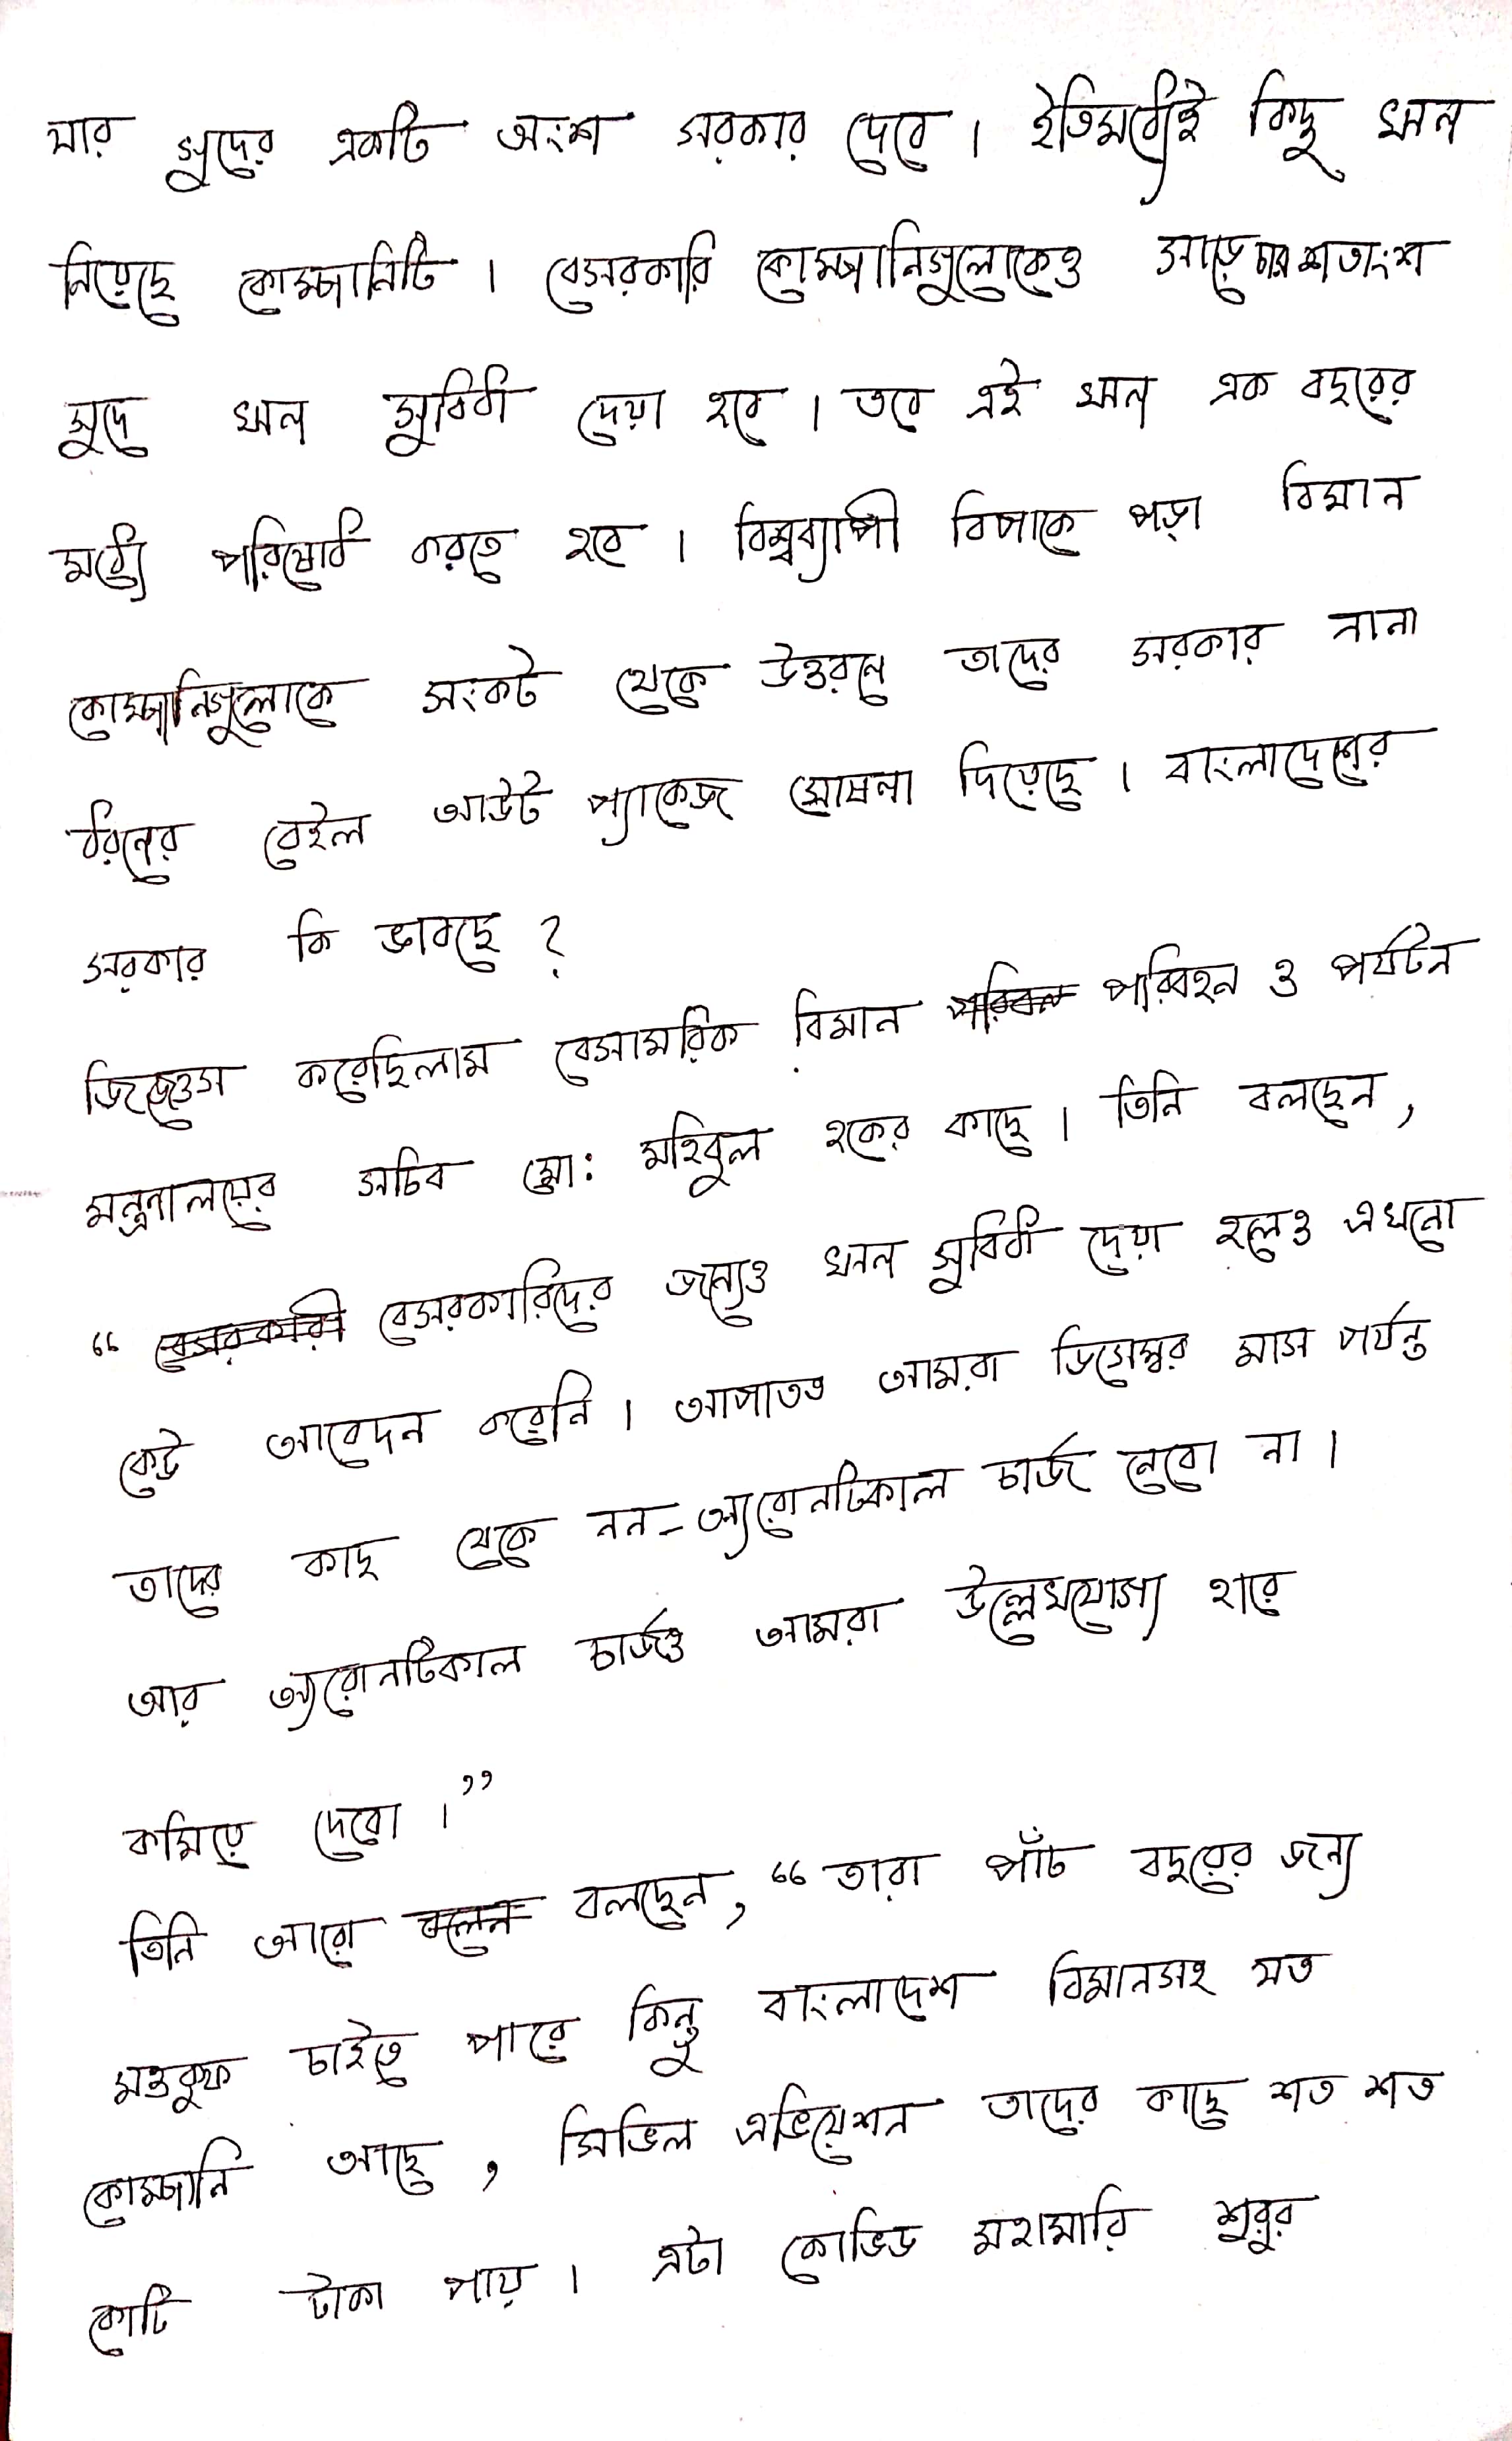 যার সুদের একটি অংশ সরকার দেবে। ইতিমধ্যেই কিছু ঋন
নিয়েছে কোম্পানিটি। বেসরকারি কোম্পানিগুলোকেও সাড়ে চার শতাংশ
সুদে ঋন সুবিধা দেয়া হবে। তবে এই ঋন এক বছরের
মধ্যে পরিশোধ করতে হবে। বিশ্বব্যাপী বিপাকে পড়া বিমান
কোম্পানিগুলোকে সংকট থেকে উত্তরনে তাদের সরকার নানা
ধরনের বেইল আউট প্যাকেজ ঘোষনা দিয়েছে। বাংলাদেশের
সরকার কি ভাবছে?
জিজ্ঞেস করেছিলাম বেসামরিক বিমান পরিবহন ও পর্যটন
মন্ত্রনালয়ের সচিব মো: মহিবুল হকের কাছে। তিনি বলছেন,
“বেসরকারিদের জন্যেও ঋন সুবিধা দেয়া হলেও এখনো
কেউ আবেদন করেনি। আপাতত আমরা ডিসেম্বর মাস পর্যন্ত
তাদের কাছ থেকে নন-অ্যারোনটিকাল চার্জ নেবো না।
আর অ্যারোনটিকাল চার্জও আমরা উল্লেখযোগ্য হারে
কমিয়ে দেবো।”
তিনি আরো বলছেন, “তারা পাঁচ বছরের জন্য
মওকুফ চাইতে পারে কিন্তু বাংলাদেশ বিমানসহ যত
কোম্পানি আছে, সিভিল এভিয়েশন তাদের কাছে শত শত
কোটি টাকা পায়। এটা কোভিড মহামারি শুরুর